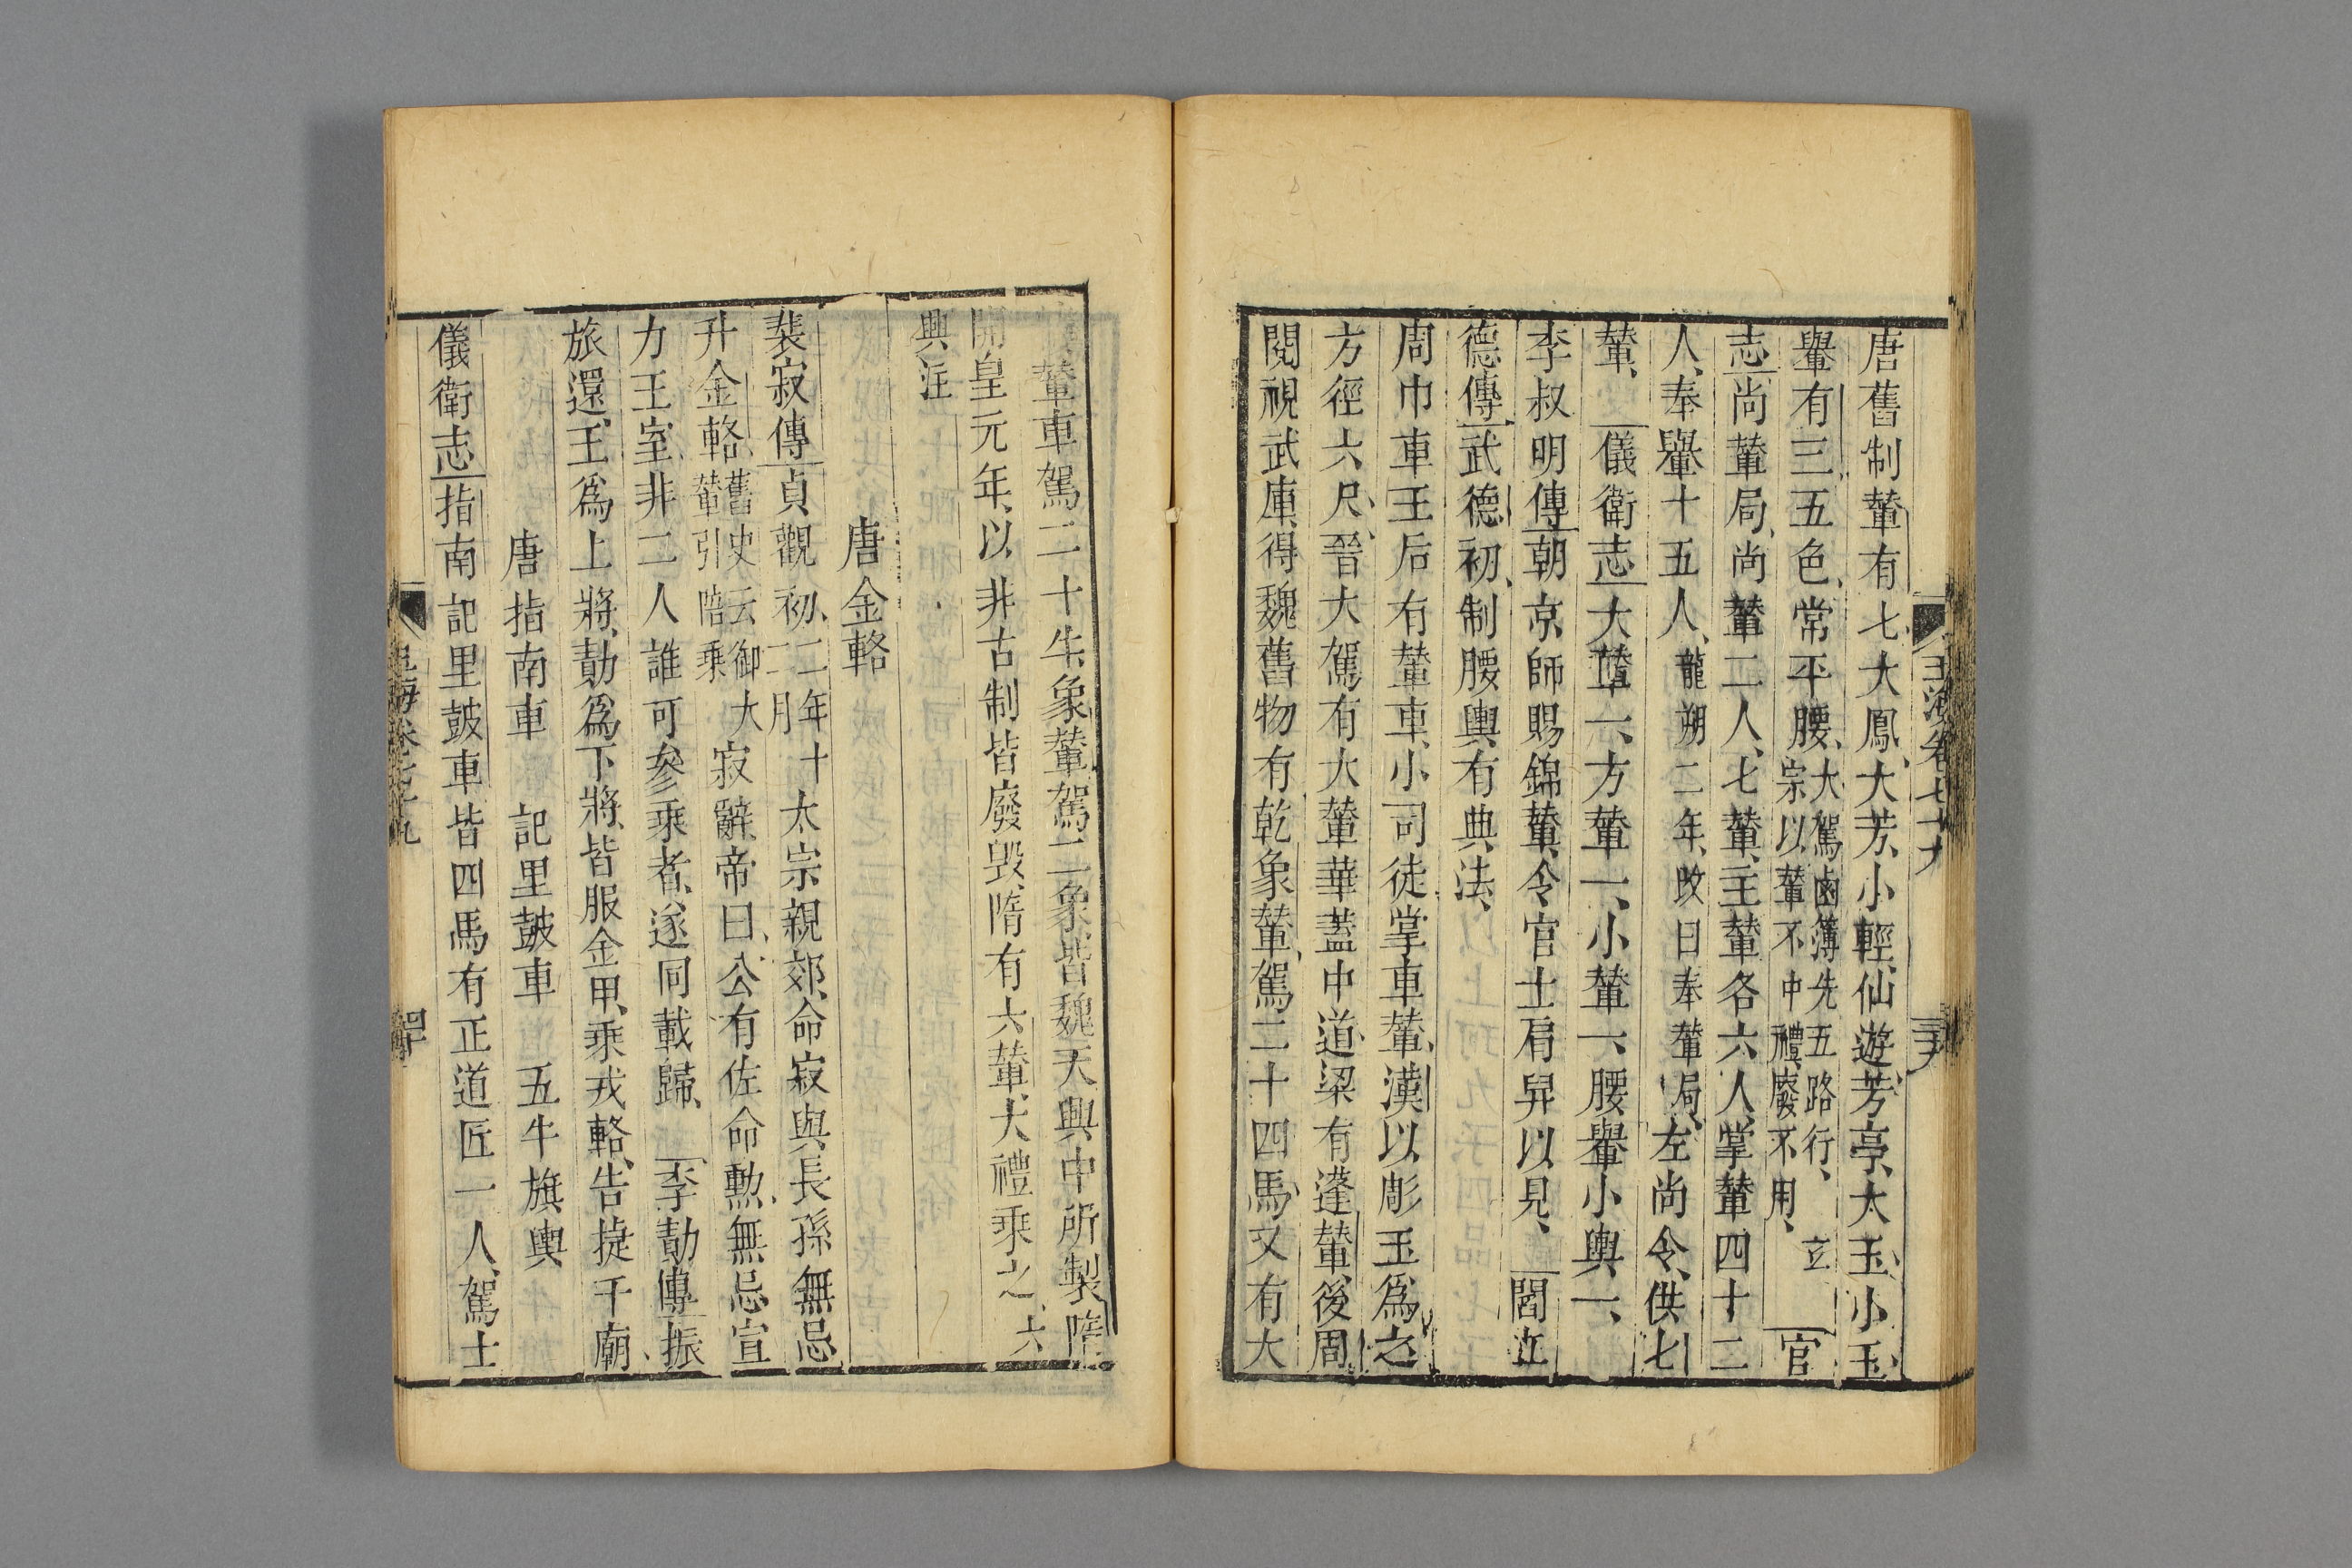 玉海卷七十九
唐舊制輦有七大鳳大芳小輕仙遊芳亭大玉小玉
轝有三五色常平腰大駕鹵簿先五路行玄宗以輦不中禮廢不用官
志尚輦局尚輦二人七輦主輦各六人掌輦四十二
人奉轝十五人龍朔二年改曰奉輦局左尚令供七
輦儀衛志大輦一方輦一小輦一腰轝小輿一
李叔明傳朝京師賜錦輦令官士肩舁以見閻立
德傳武德初制腰輿有典法
周巾車王后有輦車小司徒掌車輦漢以彫玉爲之
方徑六尺晉大駕有大輦華蓋中道梁有蓬輦後周
閱視武庫得魏舊物有乾象輦駕二十四馬又有大
輦車駕二十牛象輦駕二象皆魏天興中所製隋
開皇元年以非古制皆廢毀隋有六輦大禮乘之六
典注
唐金輅
裴寂傳貞觀初二年十二月太宗親郊命寂與長孫無忌
升金輅舊史云御大輦引陪乘寂辭帝曰公有佐命勲無忌宣
力王室非二人誰可參乘者遂同載歸李勣傳振
旅還王爲上將勣爲下將皆服金甲乘戎輅告捷于廟
唐指南車 記里鼓車 五牛旗輿
儀衛志指南記里鼓車皆四馬有正道匠一人駕士
玉海卷七十九